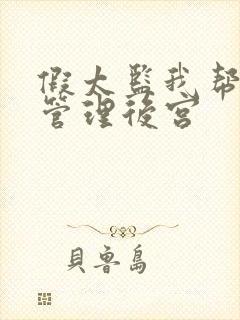 假太監我帮
管理後宮
貝魯島